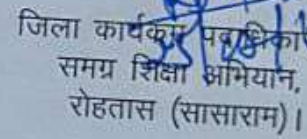 जिला कार्यक्रम पदाधिका
समग्र शिक्षा अभियान,
रोहतास (सासाराम)।